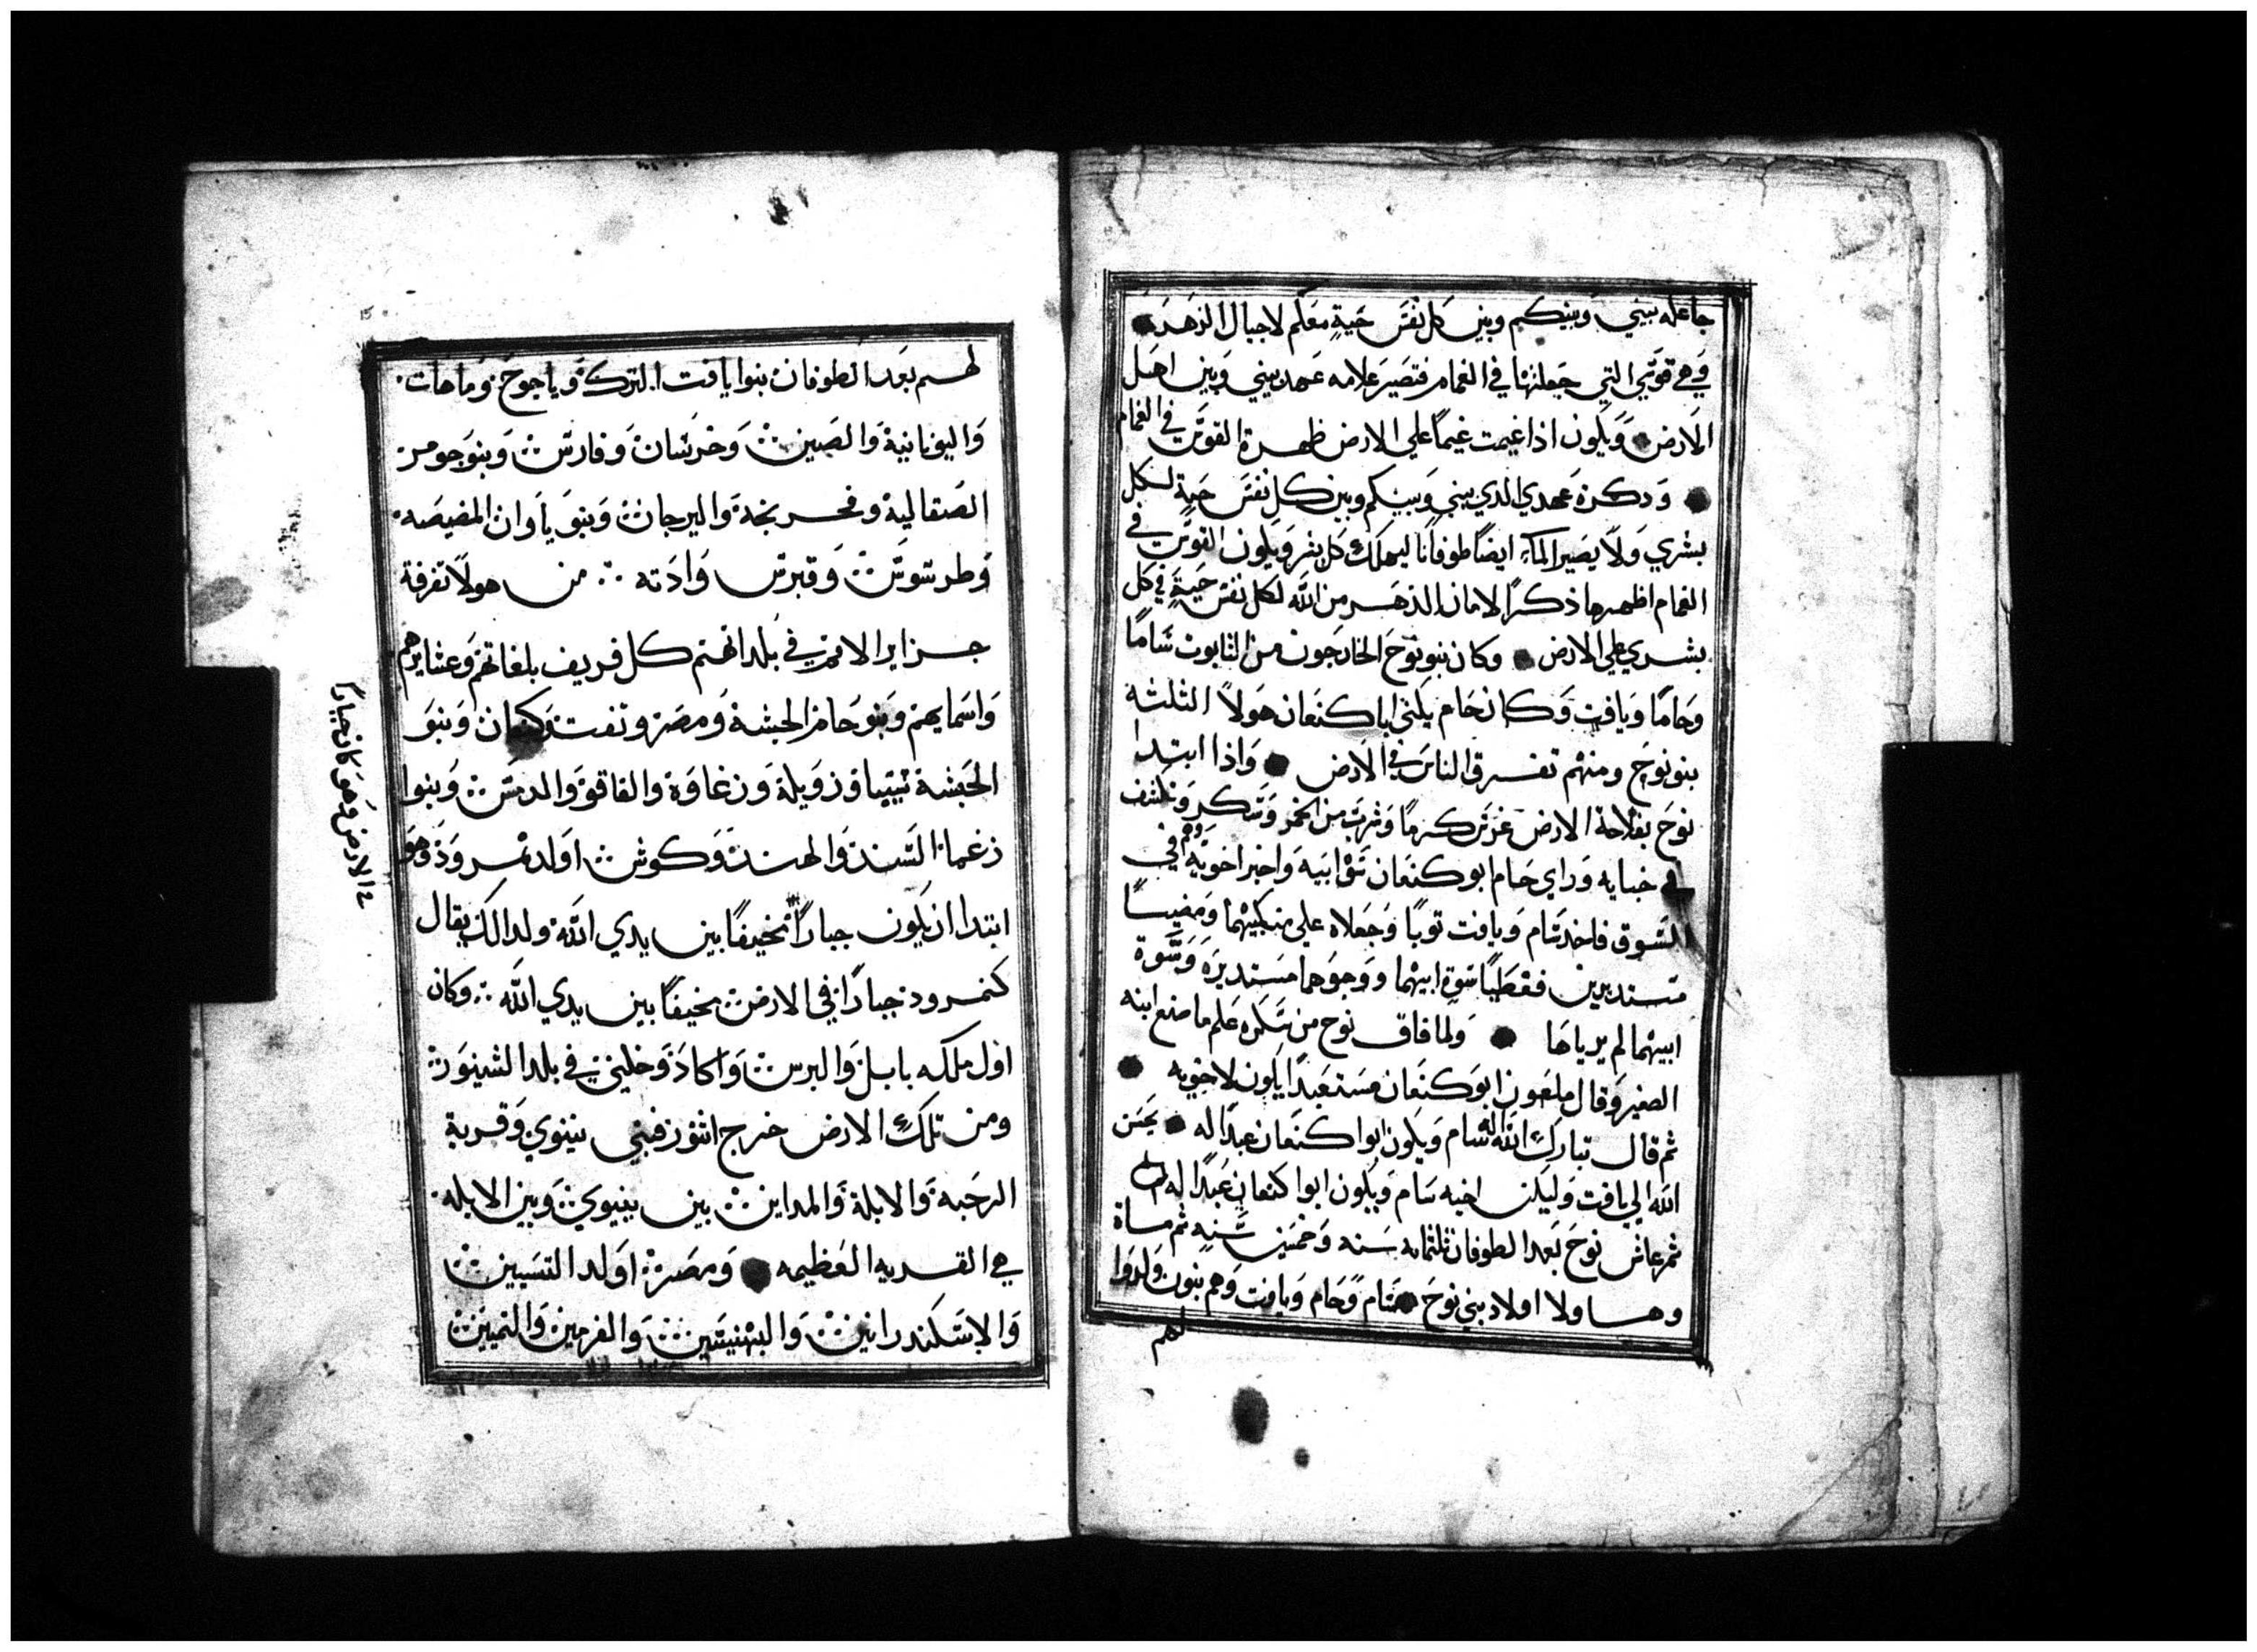 جاعله بيني وبينكم وبين كل نفس حية معكم لاجيال الدهر
وهي قوسي التي جعلتها في الغمام فتصير علامه عهد بيني وبين اهل
الارض ويكون اذا غيمت غيما علي الارض ظهرة القوس في الغمام
وذكرة عهدي الذي بيني وبينكم وبين كل نفس حية لكل
بشري ولا يصير الماء ايضا طوفانا ليهلك كل بشر ويكون القوس في
الغمام اظهرها ذكرا لامان الدهر من الله لكل نفس حية في كل
بشري علي الارض وكان بنو نوح الخارجون من التابوت ساما
وحاما ويافت وكان حام يكني ابا كنعان هولا الثلثه
بنو نوح ومنهم تفرق الناس في الارض واذا ابتدا
نوح بفلاحة الارض غرس كرما وشرب من الخمر وسكر وتكشف
في خبايه وراي حام ابو كنعان سوة ابيه واخبر اخويه وهم في
السوق فاخد سام ويافت توبا وجعلاه علي منكبيهما ومضيا
مستدبرين فغطيا سوة ابيهما ووجوهما مستديره وسوة
ابيهما لم يرياها ولما فاق نوح من سكره علم ما صنع ابنه
الصغير وقال ملعون ابو كنعان مستعبدا يكون لاخويه
ثم قال تبارك الله اله سام ويكون ابوا كنعان عبدا له يحسن
الله الي يافت وليكن اخبه سام ويكون ابوا كنعان عبدا له
ثم عاش نوح بعد الطوفان ثلثمايه سنه وخمسين سنه ثم ماة
وهاولا اولاد بني نوح سام وحام ويافت وهم بنون ولدوا
لهم
لهم بعد الطوفان بنوا يافت الترك وياجوج وماهات
واليونانية والصين وخرسان وفارس وبنو جومر
الصقالبة وفرنجة والبرجان وبنو ياوان المضيصه
وطرسوس وقبرس وادنه من هولا تفرقة
جزاير الامم في بلدانهم كل فريف بلغاتهم وعشايرهم
واسمايهم وبنو حام الحبشة ومصر وتفت وكنعان وبنو
الحبشة وزويلة وزغاوة والفاقو والدمس وبنوا
زغما السند والهند وكوش اولد نمرود وهو
ابتدا ان يكون جبارا مخيفا بين يدي الله ولدالك يقال
كنمرود جبارا في الارض مخيفا بين يدي الله وكان
اول ملكه بابل والبرس واكاد وخليني في بلد الشينور
ومن تلك الارض خرج اثور فبني نينوي وقرية
الرحبه والابلة والمداين بين نينوي وبين الابله
هي القريه العظيمه ومصر اولد التنسيين
والاسكندرانين والبهنيسين والفرمين والتميين
في الارض وهو كان جبارا